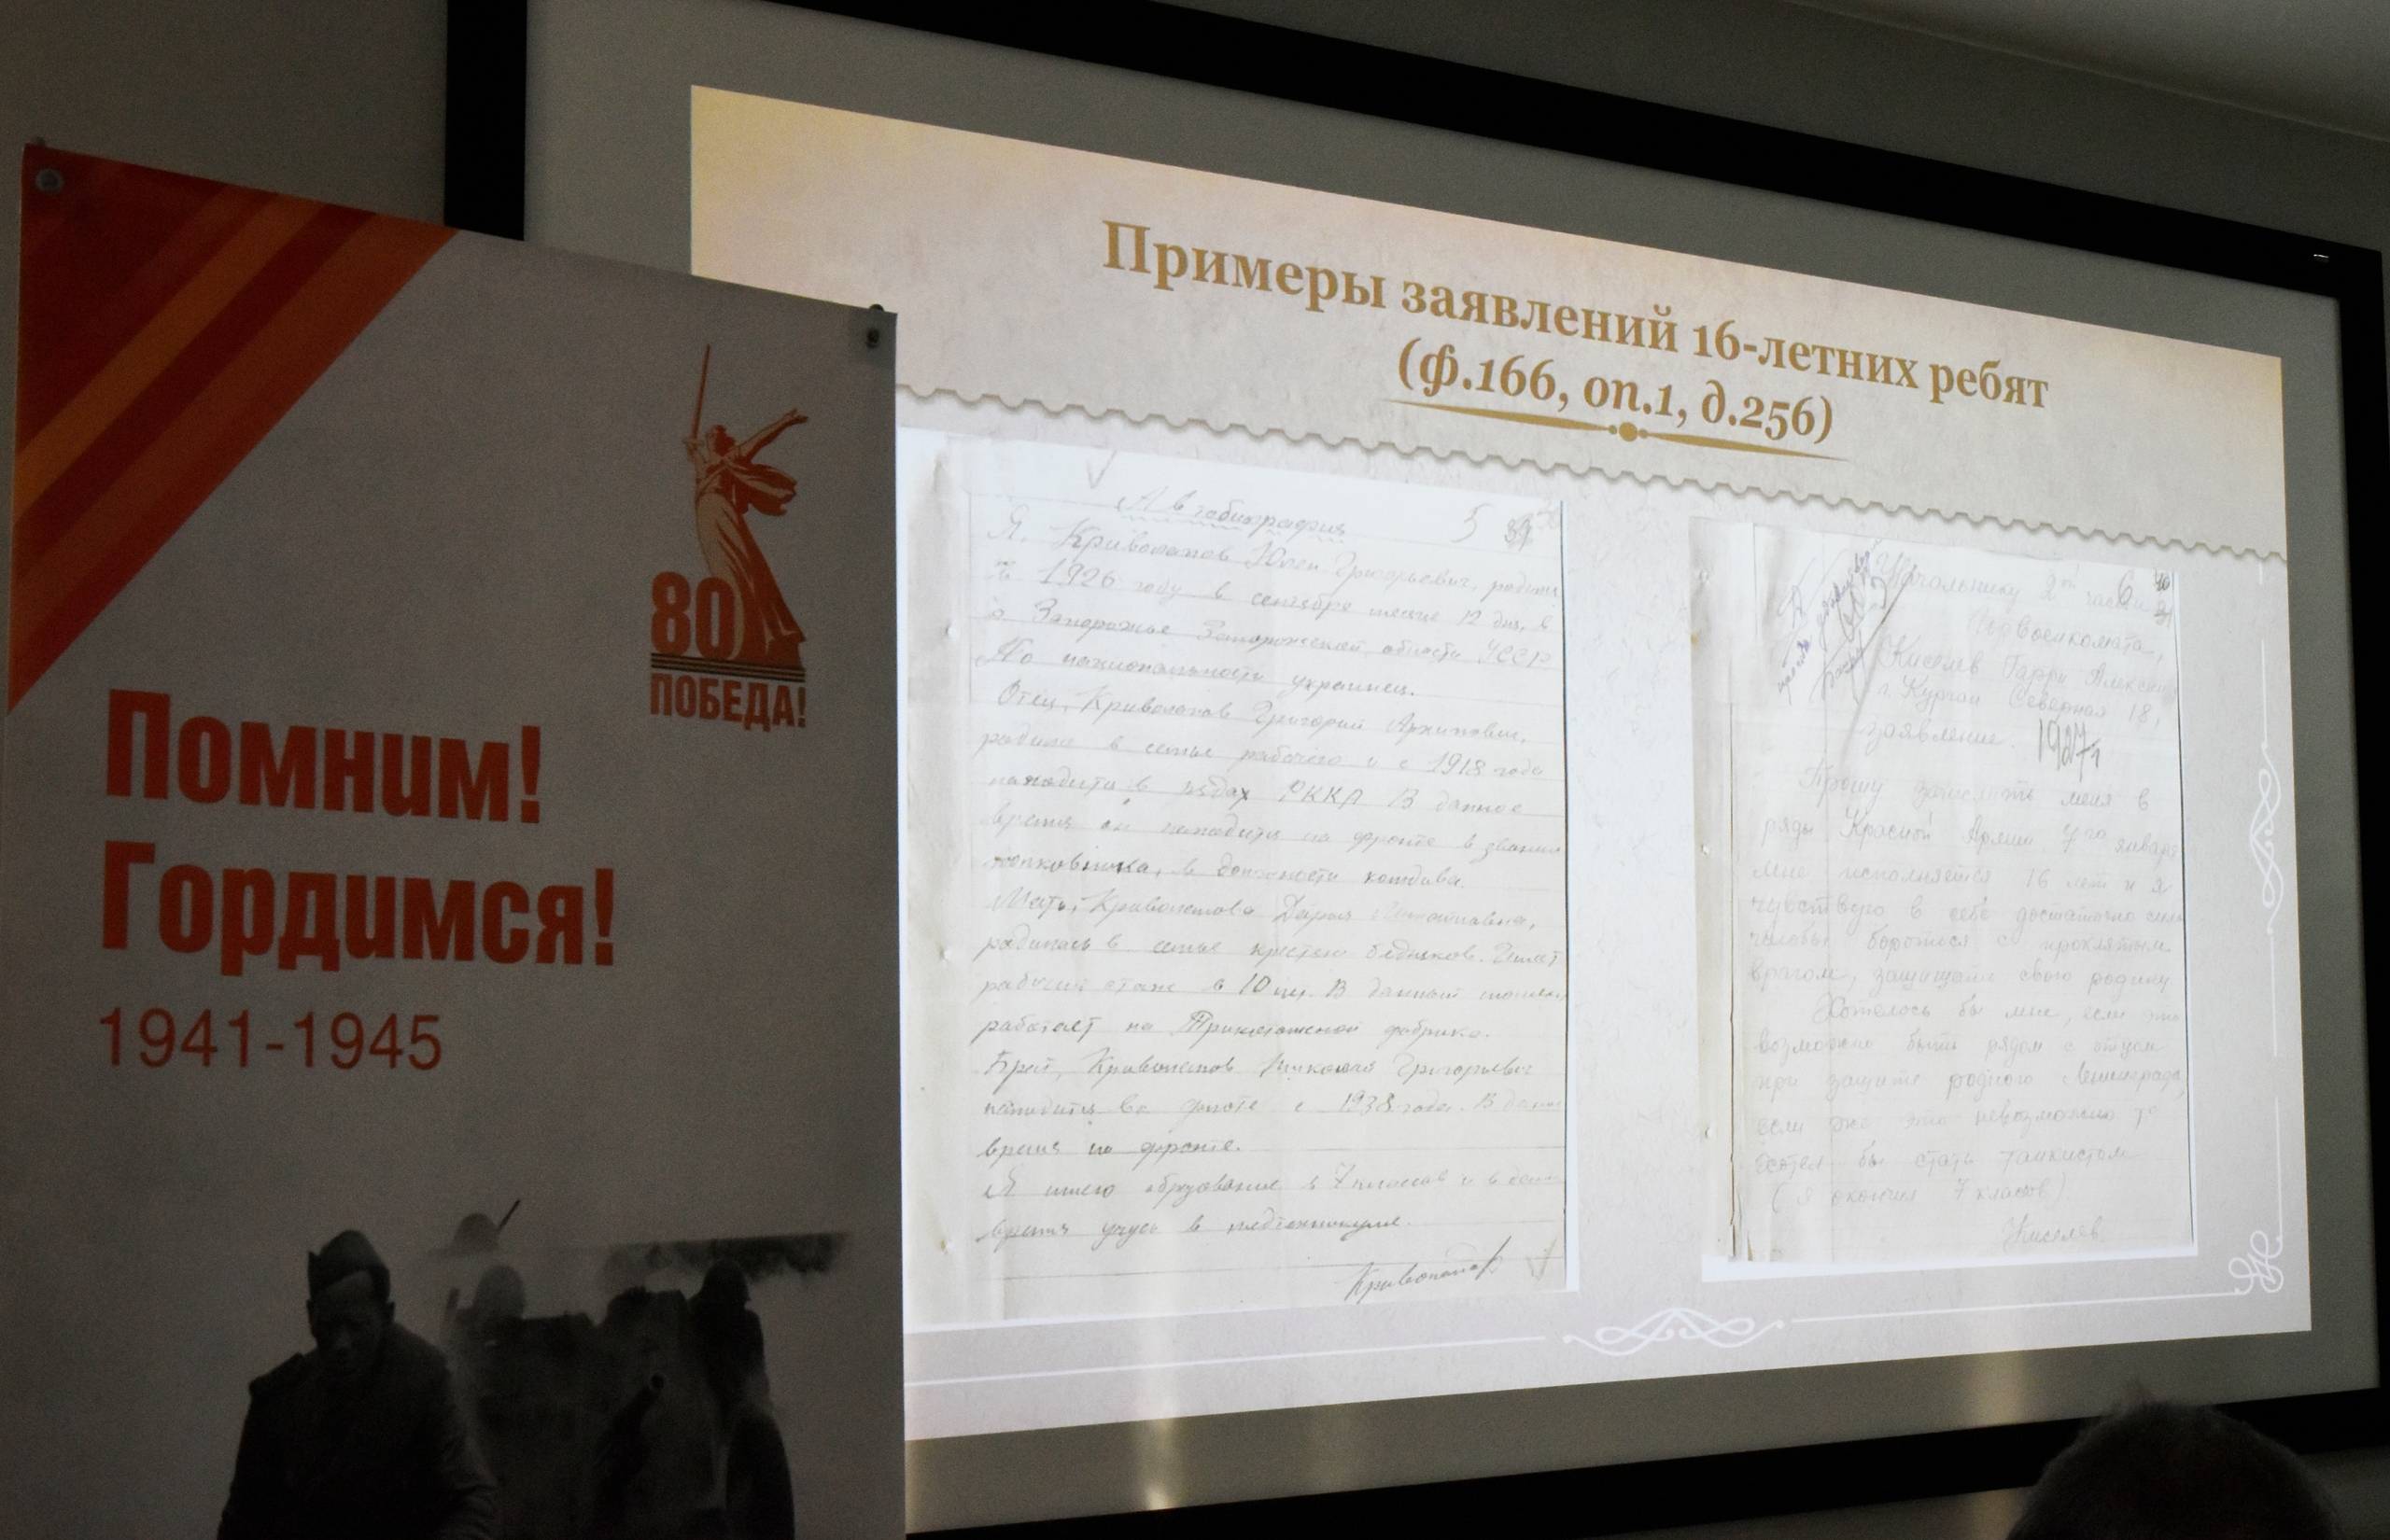 Помним!
Гордимся!
1941-1945
80
ПОБЕДА!
Примеры заявлений 16-летних ребят
(ф.166, оп.1, д.256)
Автобиография 5
Я, Григорьевич,
в 1926 году в сентябре месяце 12 дня, в
Запорожье Запорожской области УССР
По национальности украинец.
Отец, Григорий Архипович,
в семье рабочего и с 1918 года
находится в рядах РККА В данное
время он находится на фронте в звании
полковника, в должности комдива.
Мать, Дарья
родилась в семье крестьян бедняков. Имеет
рабочий стаж в 10 лет. В данный
работает на Трикотажной фабрике.
Брат, Григорьевич
находится во флоте с 1938 года. В
время на фронте.
Я имею образование 7 классов и в
время учусь в
Начальнику 2ой части 6
Горвоенкомата,
Киселев Гарри
г. Курган Северная 18,
заявление. 1927г
Прошу зачислить меня в
ряды Красной Армии 7го января
мне исполняется 16 лет и я
чувствую в себе достаточно силы
чтобы бороться с проклятым
врагом, защищать свою родину
Хотелось бы мне, если это
возможно быть рядом с отцом
при защите родного Ленинграда,
если же это невозможно то
хотел бы стать танкистом
(я окончил 7 класов)
Киселев